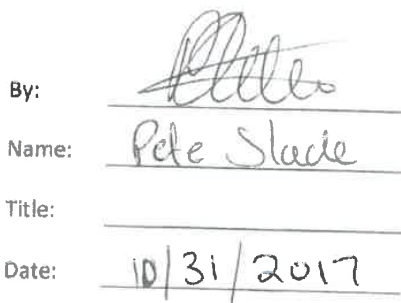 By:
Name: Pete Slade
Title:
Date: 10/31/2017